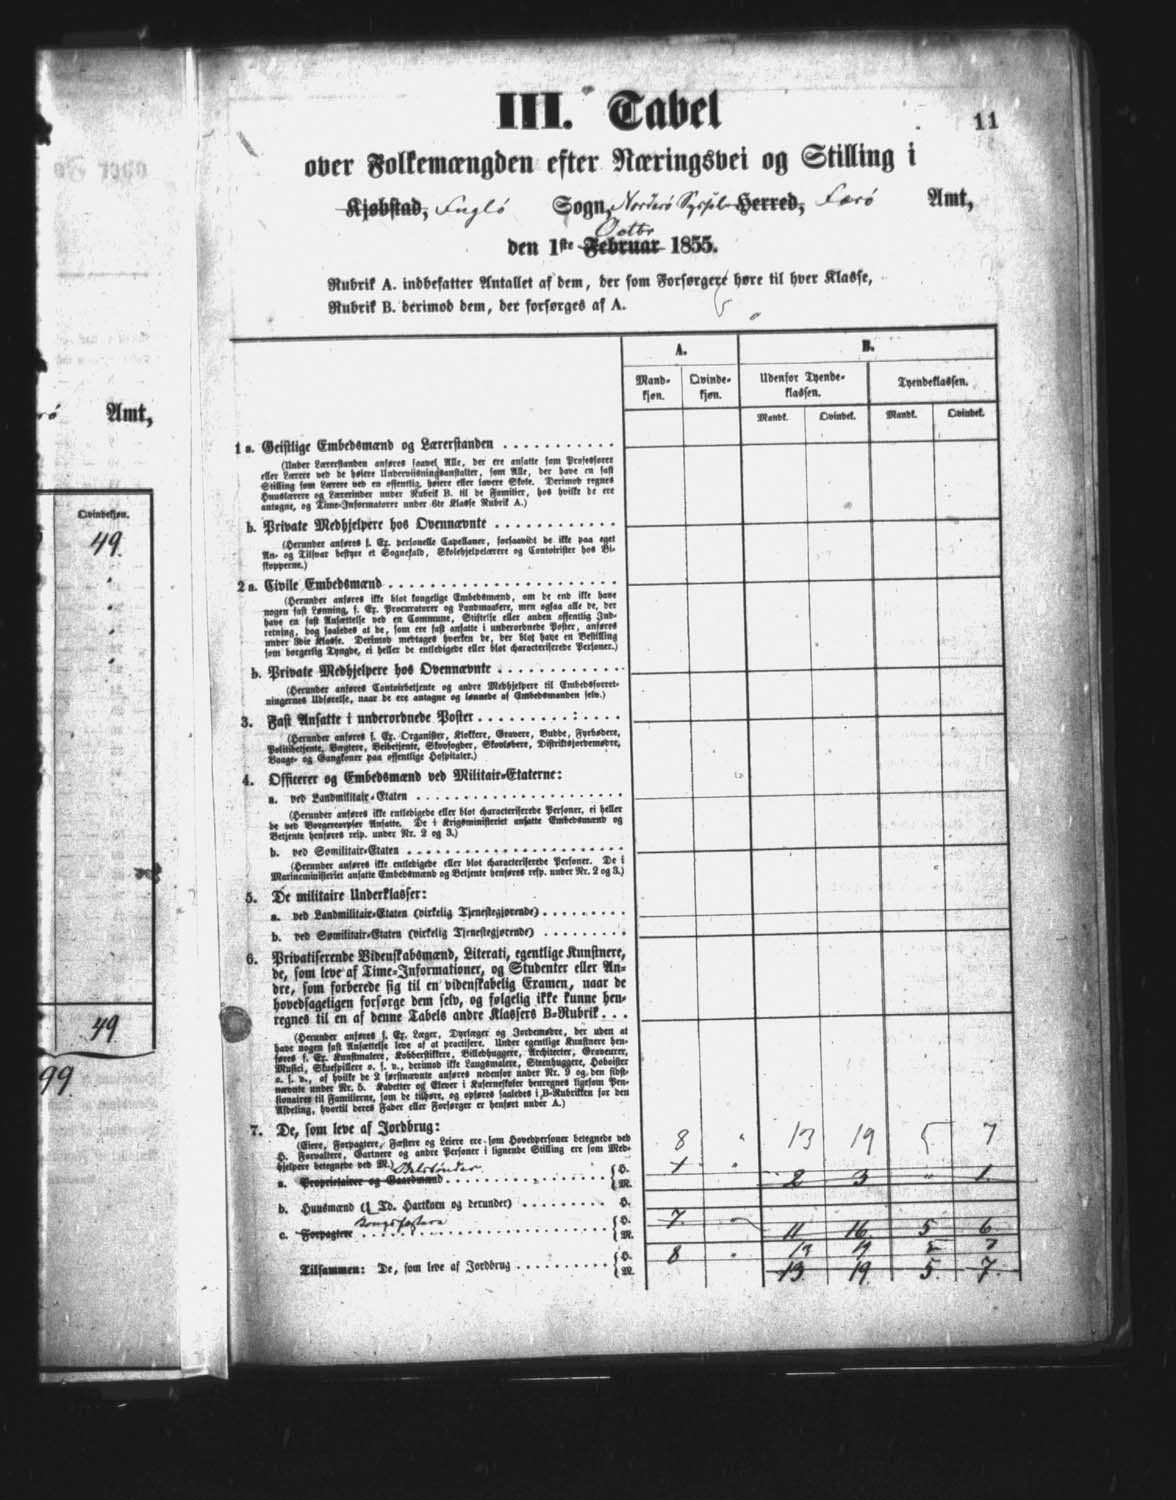 Amt,
Qvindekjøn.
49.
49.
99.
11
III. Tabel
over Folkemængden efter Næringsvei og Stilling i
Kjøbstad, Fuglö Sogn, Norderö Syssel Herred, Færö Amt,
Octbr
den 1ste Februar 1855.
Rubrik A. indbefatter Antallet af dem, der som Forsørgere høre til hver Klasse,
Rubrik B. derimod dem, der forsørges af A.
A. B.
Mandkjøn. Qvindekjøn. Udenfor Tyendeklassen. Tyendeklassen.
Mandk. Qvindek. Mandk. Qvindek.
1 a. Geistlige Embedsmænd og Lærerstanden
(Under Lærerstanden anføres saavel Alle, der ere ansatte som Professorer
eller Lærere ved de høiere Underviisningsanstalter, som Alle, der have en fast
Stilling som Lærere ved en offentlig, høiere eller lavere Skole. Derimod regnes
Huuslærere og Lærerinder under Rubrik B. til de Familier, hos hvilke de ere
antagne, og Time-Informatorer under 6te Klasse Rubrik A.)
b. Private Medhjelpere hos Ovennævnte
(Herunder anføres f. Ex. personelle Capellaner, forsaavidt de ikke paa eget
An- og Tilsvar bestyre et Sognekald, Skolehjelpelærere og Contoirister hos Bi-
skopperne.)
2 a. Civile Embedsmænd
(Herunder anføres ikke blot kongelige Embedsmænd, om de end ikke have
nogen fast Lønning, f. Ex. Procuratorer og Landmaalere, men ogsaa alle de, der
have en fast Ansættelse ved en Commune, Stiftelse eller anden offentlig Ind-
retning, dog saaledes at de, som ere fast ansatte i underordnede Poster, anføres
under 3die Klasse. Derimod medtages hverken de, der blot have en Bestilling
som borgerlig Tyngde, ei heller de entledigede eller blot characteriserede Personer.)
b. Private Medhjelpere hos Ovennævnte
(Herunder anføres Contoirbetjente og andre Medhjelpere til Embedsforret-
ningernes Udførelse, naar de ere antagne og lønnede af Embedsmanden selv.)
3. Fast Ansatte i underordnede Poster
(Herunder anføres f. Ex. Organister, Klokkere, Gravere, Budde, Fyrbødere,
Politibetjente, Vægtere, Veibetjente, Skovfogder, Skovløbere, Distriktsjordemødre,
Vaage- og Gangkoner paa offentlige Hospitaler.)
4. Officerer og Embedsmænd ved Militair-Etaterne:
a. ved Landmilitair-Etaten
(Herunder anføres ikke entledigede eller blot characteriserede Personer, ei heller
de ved Borgercorpser Ansatte. De i Krigsministeriet ansatte Embedsmænd og
Betjente henføres resp. under Nr. 2 og 3.)
b. ved Sømilitair-Etaten
(Herunder anføres ikke entledigede eller blot characteriserede Personer. De i
Marineministeriet ansatte Embedsmænd og Betjente henføres resp. under Nr. 2 og 3.)
5. De militaire Underklasser:
a. ved Landmilitair-Etaten (virkelig Tjenestegjørende)
b. ved Sømilitair-Etaten (virkelig Tjenestegjørende)
6. Privatiserende Videnskabsmænd, Literati, egentlige Kunstnere,
de, som leve af Time-Informationer, og Studenter eller An-
dre, som forberede sig til en videnskabelig Examen, naar de
hovedsageligen forsørge dem selv, og følgelig ikke kunne hen-
regnes til en af denne Tabels andre Klassers B-Rubrik
(Herunder anføres f. Ex. Læger, Dyrlæger og Jordemødre, der uden at
have nogen fast Ansættelse leve af at practisere. Under egentlige Kunstnere hen-
føres f. Ex. Kunstmalere, Kobberstikkere, Billedhuggere, Architecter, Graveurer,
Musici, Skuespillere o. s. v., derimod ikke Laugsmalere, Steenhuggere, Hoboister
o. s. v., af hvilke de 2 førstnævnte anføres nedenfor under Nr. 9 og den sidst-
nævnte under Nr. 5. Kadetter og Elever i Kaserneskoler henregnes ligesom Pen-
sionairer til Familierne, som de tilhøre, og opføres saaledes i B-Rubrikken for den
Afdeling, hvortil deres Fader eller Forsørger er henført under A.)
7. De, som leve af Jordbrug:
(Eiere, Forpagtere, Fæstere og Leiere ere som Hovedpersoner betegnede ved
H. Forvaltere, Gartnere og andre Personer i lignende Stilling ere som Med-
hjelpere betegnede ved M.)
8 " 13 19 5 7
a. Proprietairer og Gaardmænd {H. 1 " 2 3 " 1.
{M.
b. Huusmænd (1 Td. Hartkorn og derunder) H.
Kongsfæstere
c. Forpagtere {H. 7. " 11 16. 5 6
{M.
13 19 5 7
Tilsammen: De, som leve af Jordbrug {H. 8 " 13. 19. 5. 7.
{M.